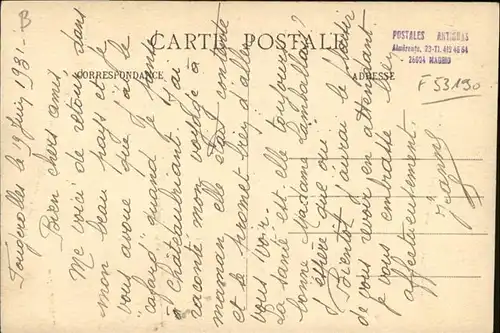 CARTE POSTALE
CORRESPONDANCE
ADRESSE
POSTALES ANTIGUAS
28004 MADRID
F 53190
B
Fougerolles le 19 Juin 1931.
Bien chers amis
Me voici de retour, dans
mon beau pays et je
vous avoue que j'ai le
cafard quand je pense
à Châteaubriant. J'ai
raconté mon voyage à
maman elle était contente
et se promet bien d'aller
vous voir.
La santé est elle toujours
bonne Madame Lamballais?
J'espère que oui
Bientôt j'aurai le plaisir
de vous revoir en attendant
je vous embrasse bien
affectueusement.
Jeanne